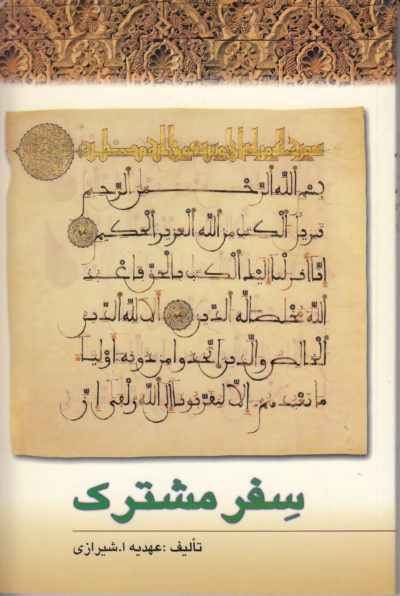 بسم الله الرحمن الرحيم
تنزيل الكتب من الله العزيز الحكيم
انا انزلنا اليك الكتب بالحق فاعبد
الله مخلصا له الدين الا لله الدين
الخالص والذين اتخذوا من دونه اوليا
ما نعبدهم الا ليقربونا الى الله زلفى ان
سِفر مشترک
تألیف : عهدیه ا.شیرازی